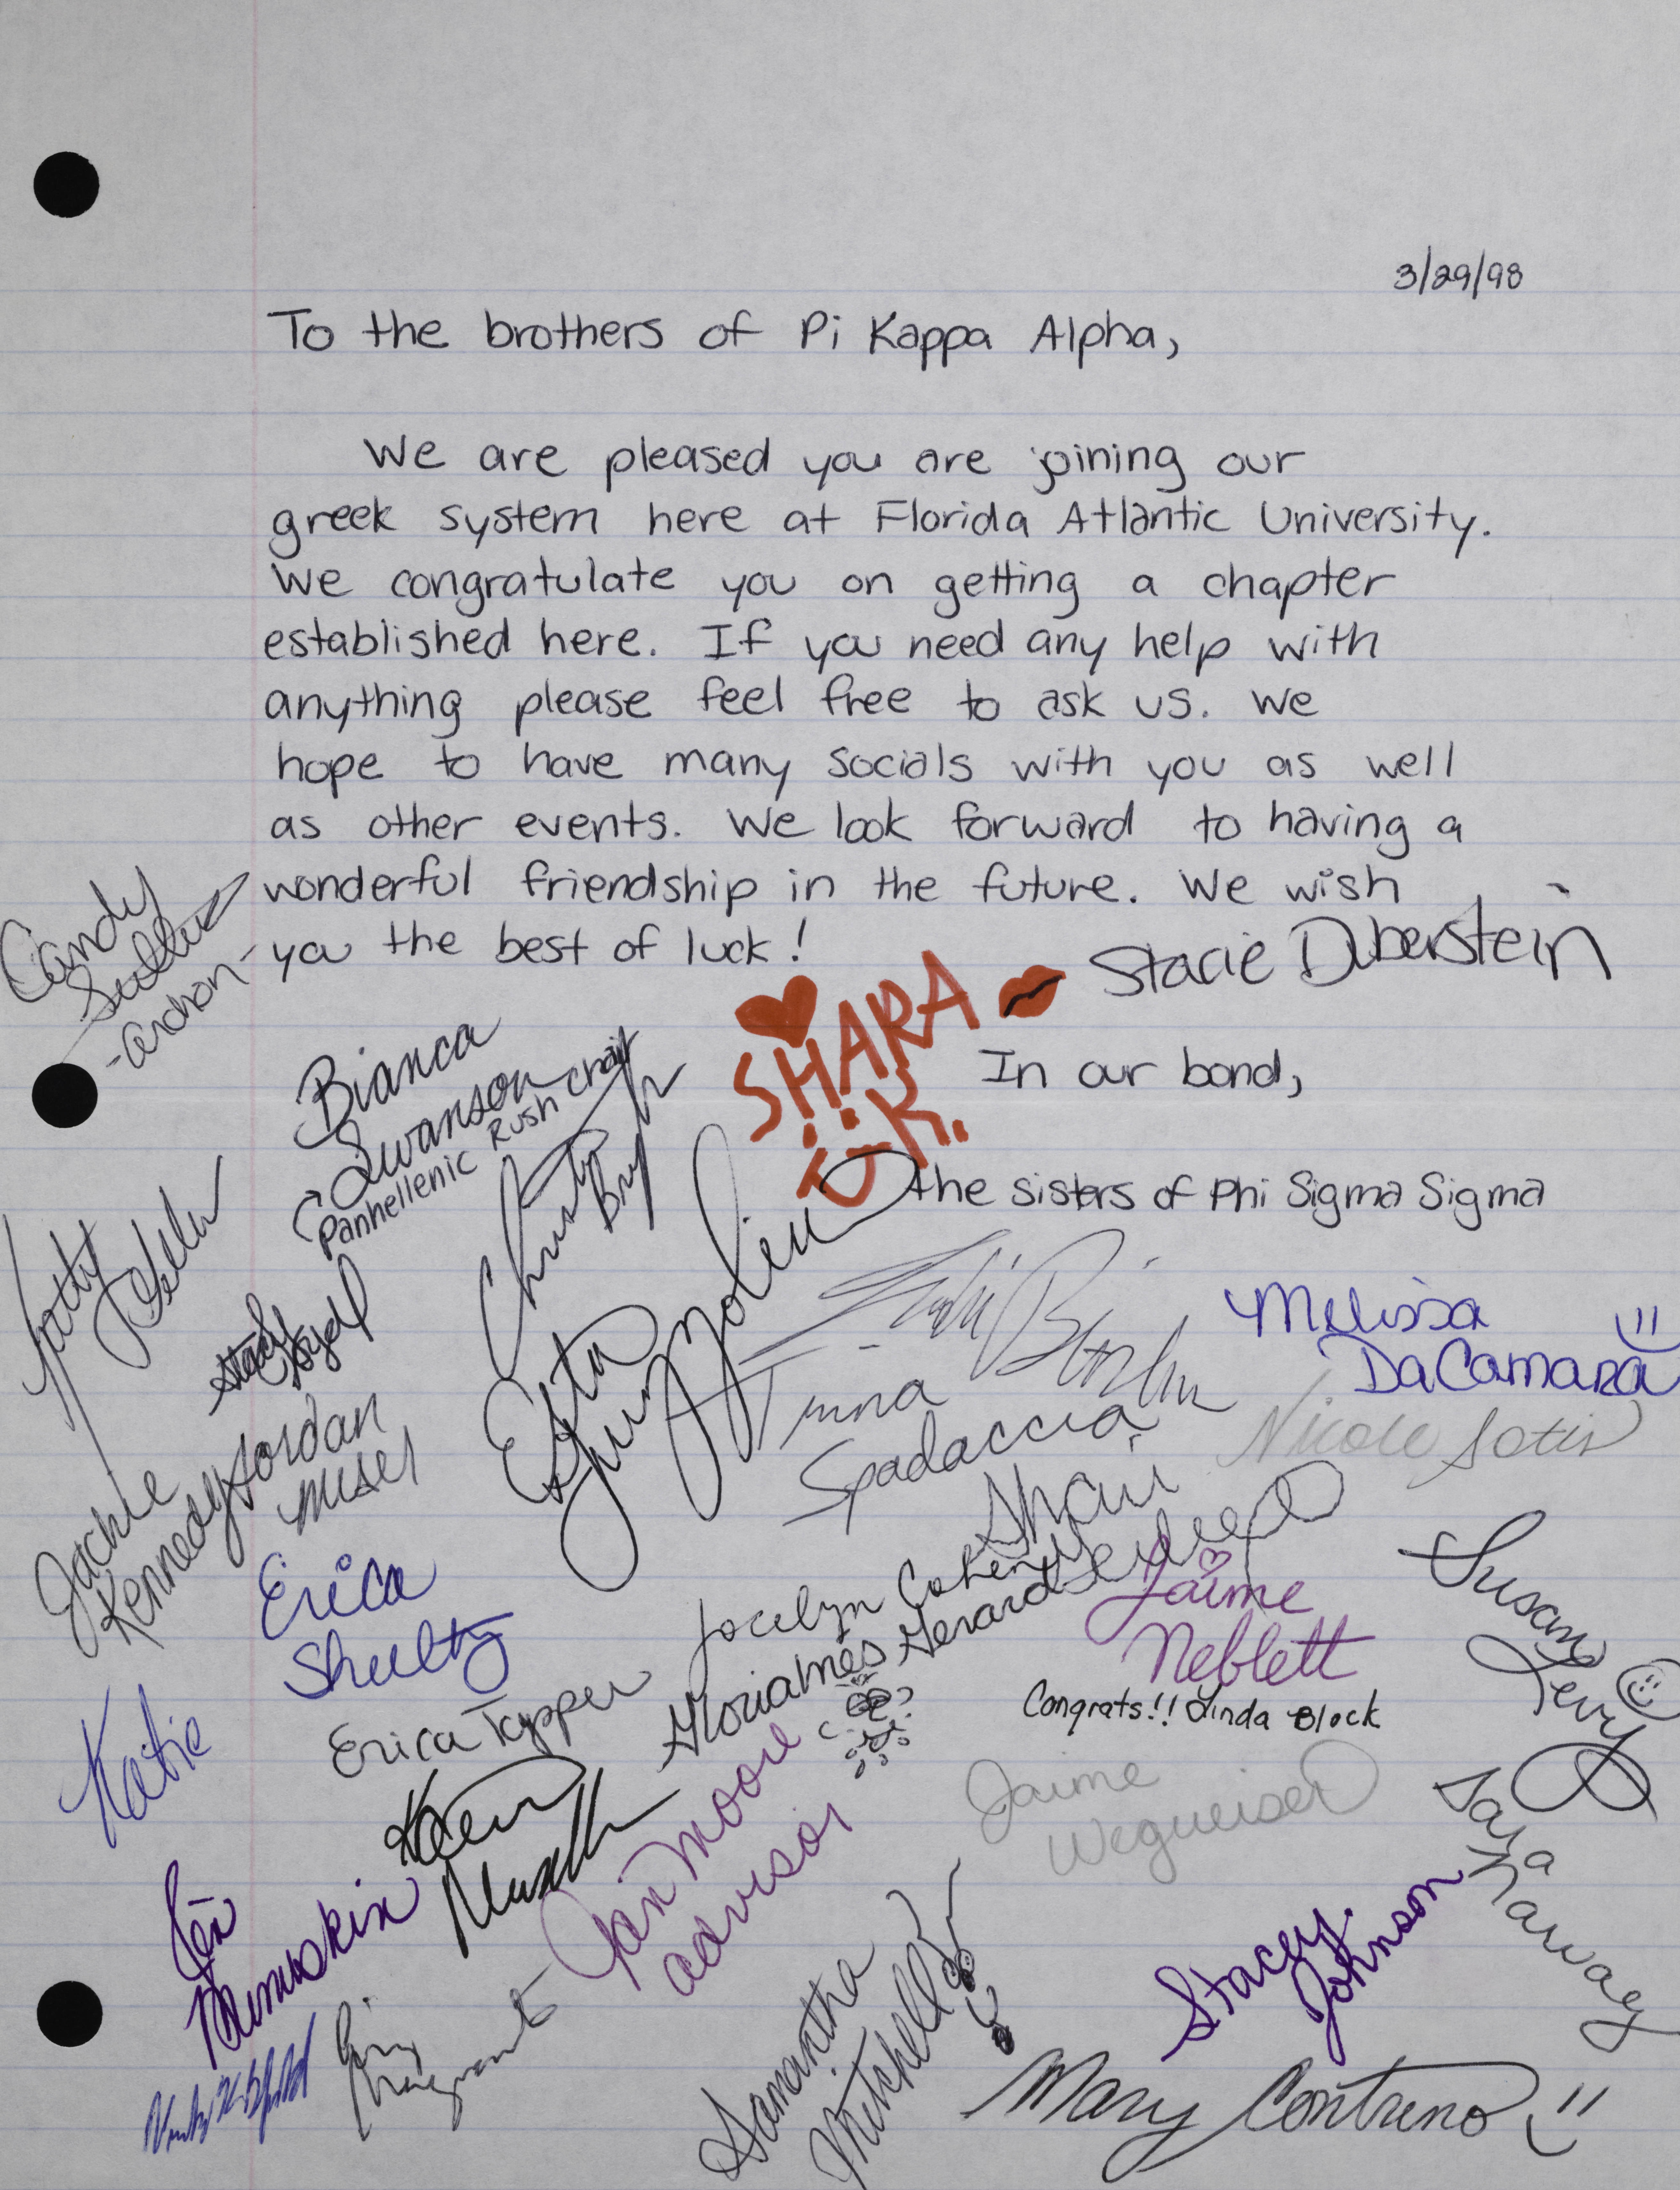 3/29/98
To the brothers of Pi Kappa Alpha,
We are pleased you are joining our
greek system here at Florida Atlantic University.
We congratulate you on getting a chapter
established here. If you need any help with
anything please feel free to ask us. We
hope to have many socials with you as well
as other events. We look forward to having a
wonderful friendship in the future. We wish
you the best of luck!
Stacie Duberstein
Candy
-archon-
SHARA
K.
Bianca
Swanson
Panhellenic Rush Chair
In our bond,
the sisters of Phi Sigma Sigma
Christy
Katty
Stacy
Melissa
DaCamara
Trina
Spadaccia
Nicole Sotis
Jackie
Kennedy
Jordan
Miser
Shari
Erica
Shultz
Jocelyn Cohen
Glorialnes Gerard
Jaime
Neblett
Susan
Levy
Erica Tepper
Congrats!! Linda Block
Katie
Karen
Jen Moore
advisor
Jaime
Wegweiser
Sara
Narway
Jen
Stacey
Johnson
Samantha
Mitchell
Mary Contreno